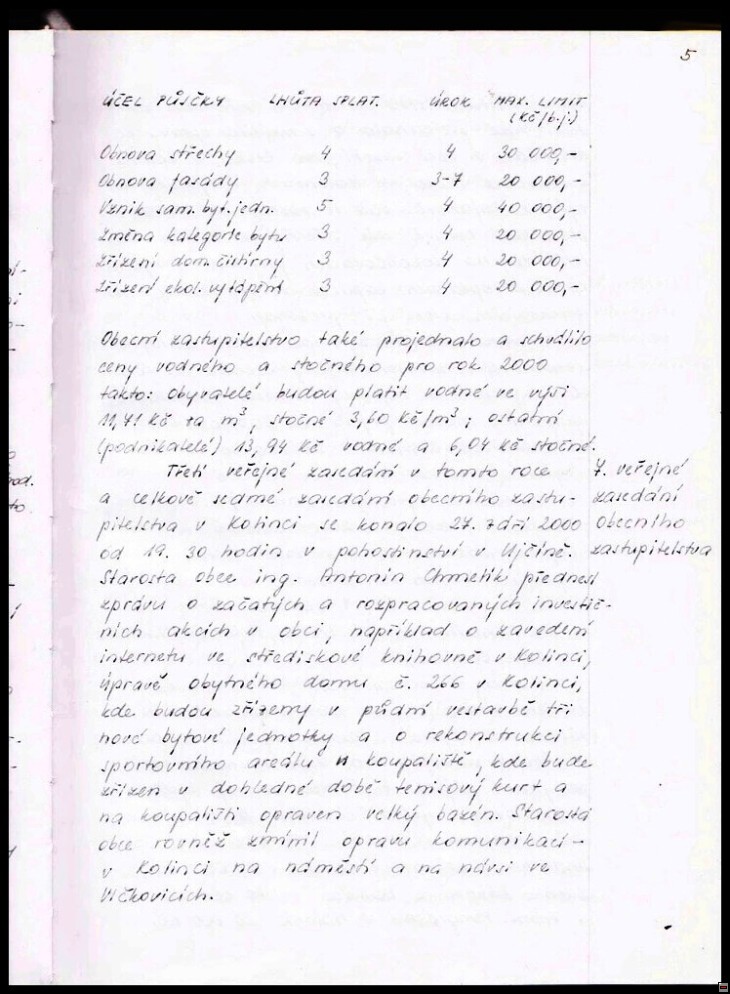 5
ÚČEL PŮJČKY LHŮTA SPLAT. ÚROK MAX. LIMIT
(Kč/b.j.)
Obnova střechy 4 4 30 000,-
Obnova fasády 3 3-7 20 000,-
Vznik sam. byt. jedn. 5 4 40 000,-
Změna kategorie bytu 3 4 20 000,-
Zřízení dom. čistírny 3 4 20 000,-
Zřízení ekol. vytápění 3 4 20 000,-
Obecní zastupitelstvo také projednalo a schválilo
ceny vodného a stočného pro rok 2000
takto: obyvatelé budou platit vodné ve výši
11,71 Kč za m³, stočné 3,60 Kč/m³; ostatní
(podnikatelé) 13,94 Kč vodné a 6,04 Kč stočné.
Třetí veřejné zasedání v tomto roce
a celkově sedmé zasedání obecního zastu-
pitelstva v Kolinci se konalo 27. září 2000
od 19.30 hodin v pohostinství v Ujčíně.
7. veřejné
zasedání
Obecního
zastupitelstva
Starosta obce ing. Antonín Chmelík přednesl
zprávu o začatých a rozpracovaných investič-
ních akcích v obci, například o zavedení
internetu ve střediskové knihovně v Kolinci,
úpravě obytného domu č. 266 v Kolinci,
kde budou zřízeny v půdní vestavbě tři
nové bytové jednotky a o rekonstrukci
sportovního areálu n koupaliště, kde bude
zřízen v dohledné době tenisový kurt a
na koupališti opraven velký bazén. Starosta
obce rovněž zmínil opravu komunikací -
v Kolinci na náměstí a na návsi ve
Vlčkovicích.